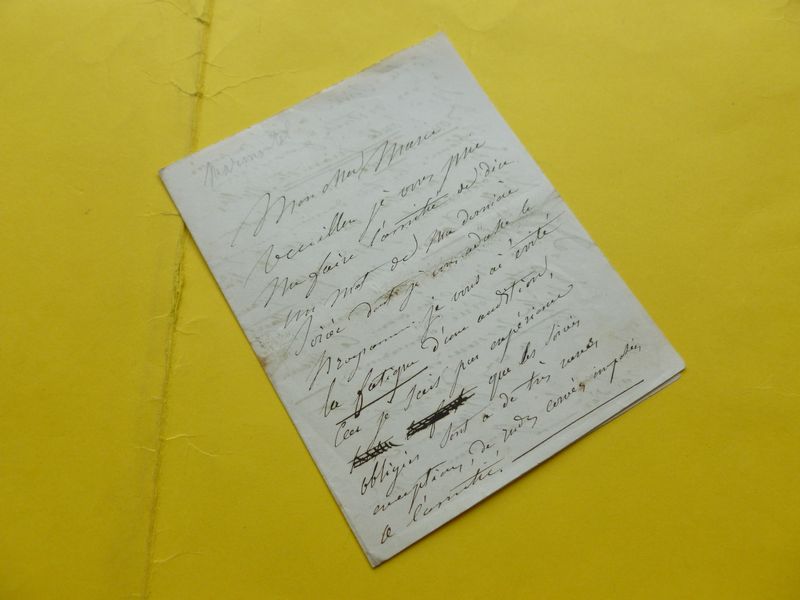 Marmontel
Mon cher Marie
Veuillez je vous prie
me faire l'amitié de dire
un mot de ma dernière
soirée dont je vous adresse le
programme. je vous ai évité
la fatigue d'une audition,
Car je sais par expérience
que les soirées
obligées sont a de très rares
exceptions, de rudes corvées imposées
a l'amitié.